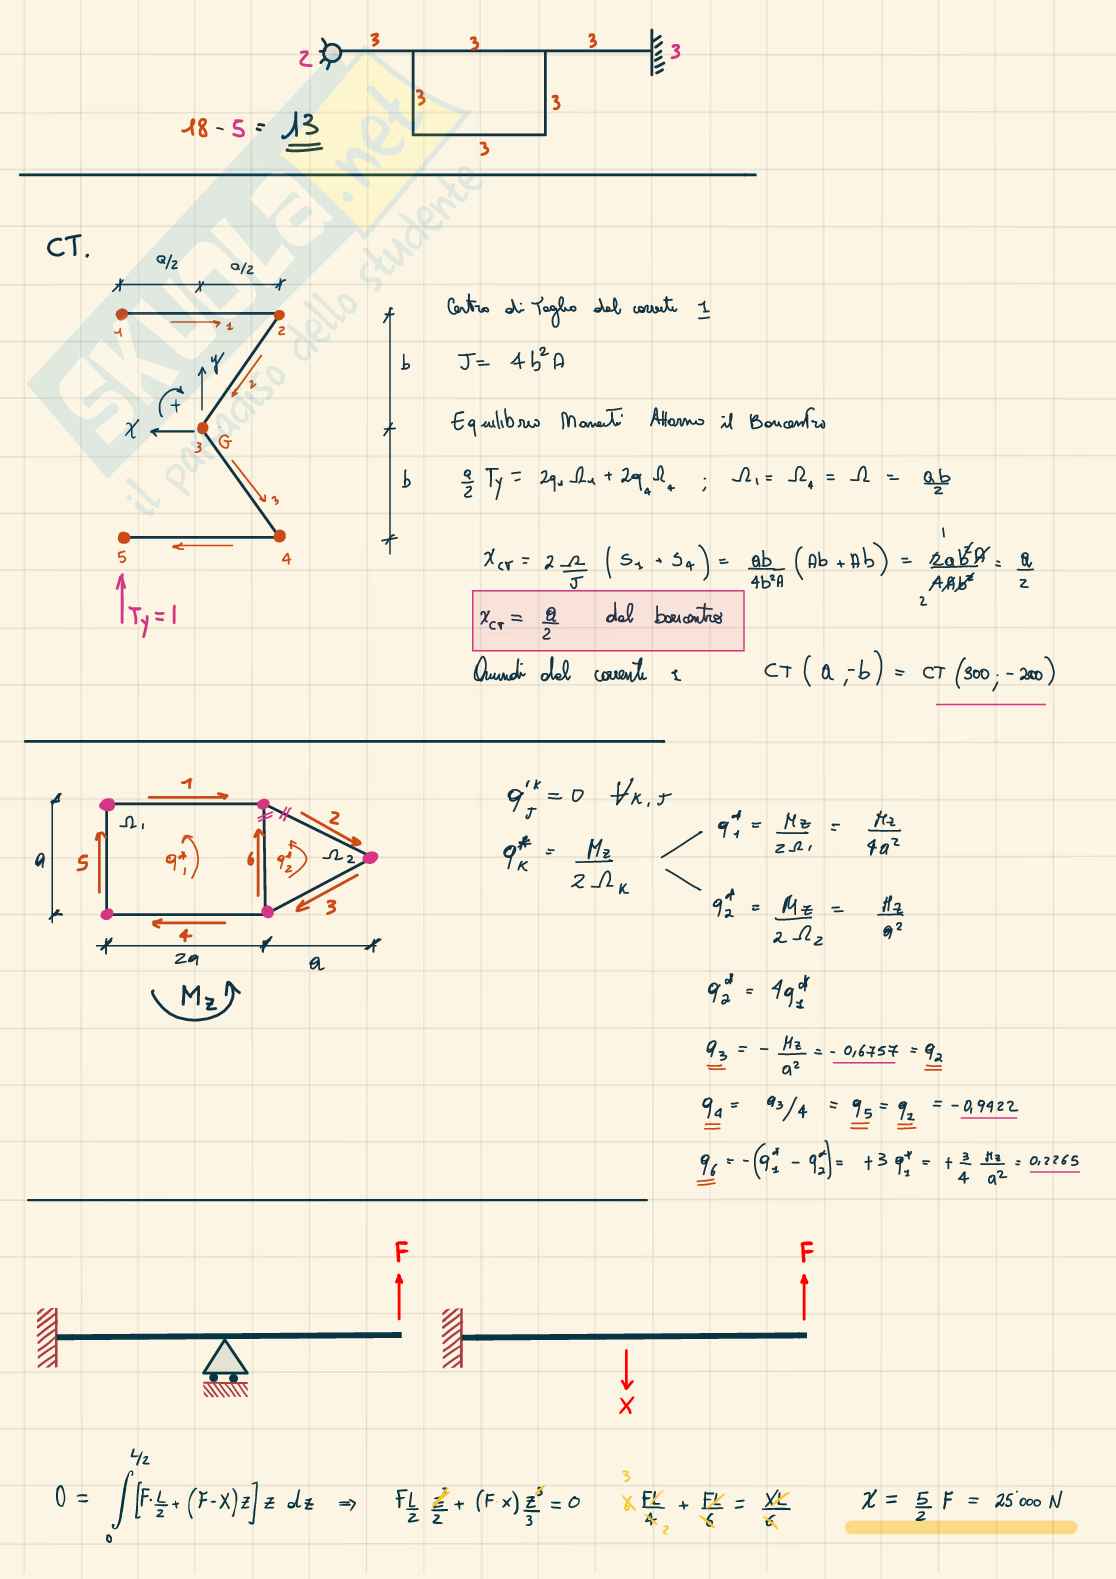 3 3 3
2 3
3 3
18 - 5 = 13
3
SKUOLA.net
il paradiso dello studente
CT.
a/2 a/2
1 1 2
2
y
+
x
3 G
3
5 4
Ty = 1
b
b
Centro di Taglio dal corrente 1
J = 4b²A
Equilibrio Momenti Attorno il Baricentro
a/2 Ty = 2q₁Ω₁ + 2q₄Ω₄ ; Ω₁ = Ω₄ = Ω = ab/2
x_CT = 2 Ω/J (S₁ + S₄) = ab/4b²A (Ab + Ab) = 2ab²A/4Ab² = a/2
1
2
x_CT = a/2 dal baricentro
Quindi dal corrente 1 CT (a ; -b) = CT (300 ; -200)
1
a 5 Ω₁ q₁* 6 q₂* Ω₂ 2
3
4
2a a
Mz
q'ᴷ_J = 0 ∀K,J
q*_K = Mz/2Ω_K
q₁* = Mz/2Ω₁ = Mz/4a²
q₂* = Mz/2Ω₂ = Mz/a²
q₂* = 4q₁*
q₃ = - Mz/a² = - 0,6757 = q₂
q₄ = q₃/4 = q₅ = q₂ = - 0,9422
q₆ = -(q₁* - q₂*) = +3q₁* = + 3/4 Mz/a² = 0,2265
F F
X
0 = ∫₀^(L/2) [F·L/2 + (F-X)z] z dz ⇒ FL/2 z²/2 + (F x) z³/3 = 0
3
FL/4 + FL/6 = XL/6
2
x = 5/2 F = 25'000 N